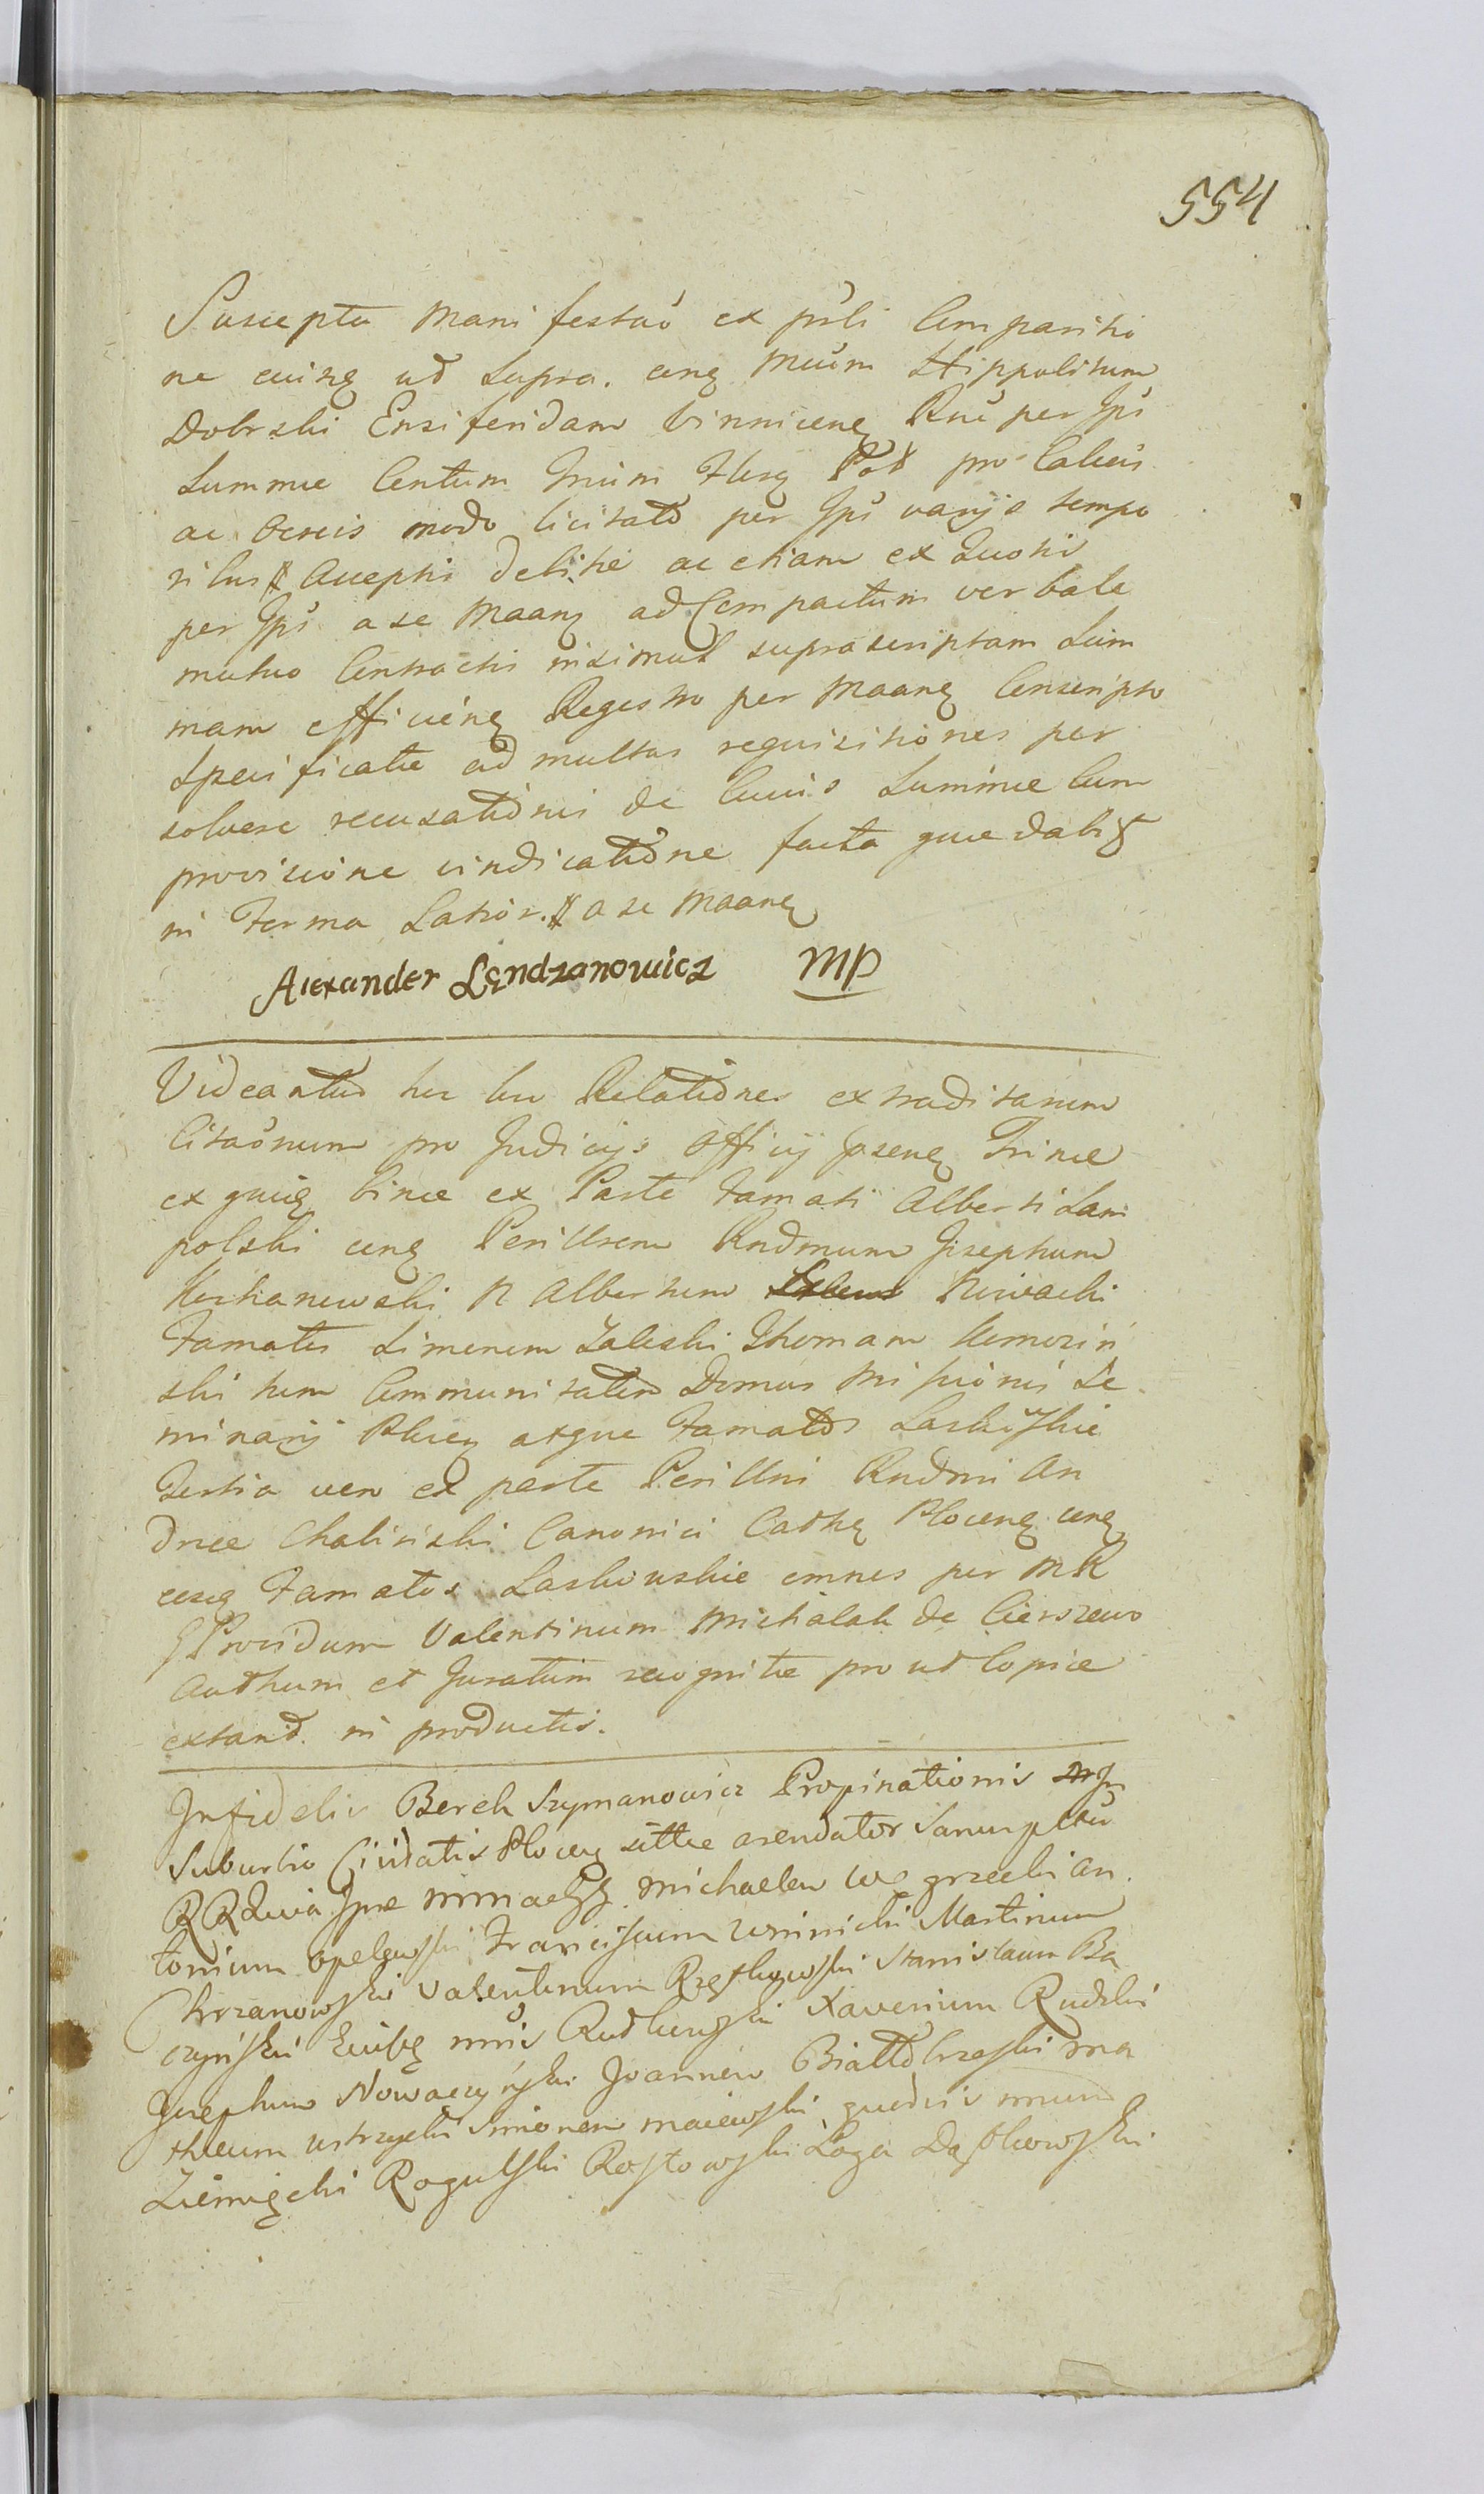 554
Suscepta Manifestaō ex pńli Comparitio
ne cuisq ud Supra. cong Mcum Hippolitum
Dobrski Ensiferidam Vinnicenq Rnē per Ipś
Summe Centum Trium Flosq Pol pro Calceis
ac Ocreis modo licitato per Ipś varijs tempo
ribus Acceptis debitæ ac etiam ex Quotis
per Ipś a se Maanq ad Compactum verbale
mutuo Contractis in simul suprascriptam Sum
mam efficienq Regestro per Maanq Conscripto
Specificatæ ad multas requisitiones per
solvere recusationis de Cuius Summæ Cum
provisione vindicatione facta quæ dabit
in Forma Latiōr. a se Maanq
Alexander Lendzanowicz MP
Videantur hic loci Relationes extraditarum
Citaōnum pro Judicijs Officij Trinæ
ex quis binæ ex Parte Famati Alberti Sam
polski conq Perillrem Rndmum Josephum
Kochanowski R Albertum Nowacki
Famatos Simonem Zaleski Thomam Komorin
ski tum Communitatem Domus Missionis Se
minarij Plocq atque Famatos Laskowskie
Tertia vero ex parte Perillris Rndmi An
dreæ Chalinski Canonici Cathq Plocenq conq
eosq Famatos Laskowskie omnes per MR
Providum Valentinum Michalak de Cierszewo
Authum et Juratum recognitæ prout Copiæ
extand. in productis.
Infidelis Berek Szymanowicz Propinationis in
Suburbio Civitatis Plocq sittæ arendator
Michaelem Wegrzecki An
tonium Opelewski Franciscum Winnicki Martinum
Chrzanowski Valentinum Stanislaum Ba
czynski Rudkowski Xaverium Rudzki
Josephum Nowaczynski Joannem Białobrzeski Ma
theum Ustrzycki Simonem Maiewski
Ziemięcki Rogulski Rostowski Loga Dąbkowski